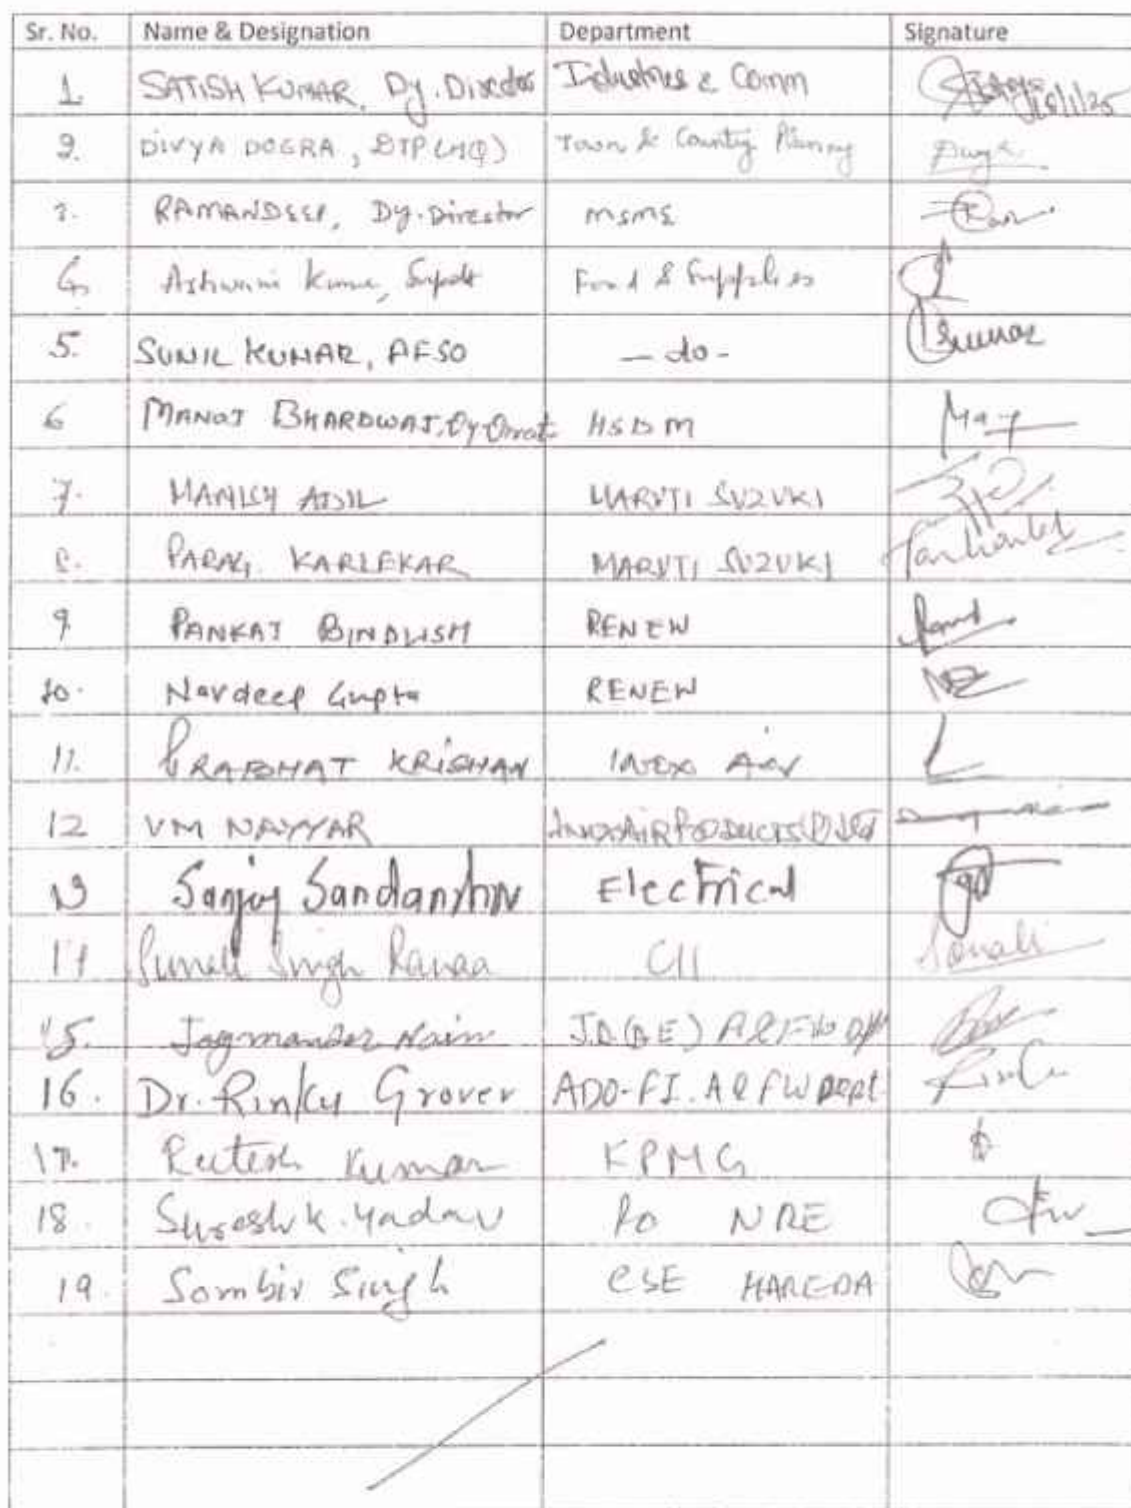 Sr. No. Name & Designation Department Signature
1 SATISH KUMAR, Dy. Director Industries & Comm
2. DIVYA DOGRA, DTP (HQ) Town & Country Planning
3. RAMANDEEP, Dy. Director MSME
4. Ashwini Kumar, Supdt Food & Supplies
5. SUNIL KUMAR, AFSO - do - Kumar
6 MANOJ BHARDWAJ, Dy Direct HSDM
7. MANISH ADIL MARUTI SUZUKI
8. PARAG KARLEKAR MARUTI SUZUKI
9. PANKAJ BINDLISH RENEW
10. Navdeep Gupta RENEW
11. PRABHAT KRISHAN INOX Air
12 VM NAYYAR INOX AIR PRODUCTS (P) Ltd
13 Sanjoy Electrical
14 Singh Ranaa CII Sonali
15. Jagmander Nain J.D (AE) A&FW
16. Dr. Rinky Grover ADO-FI. A&FW Dept.
17. Ritesh Kumar KPMG
18. Suresh K. Yadav PO NRE
19. Sombir Singh CSE HAREDA